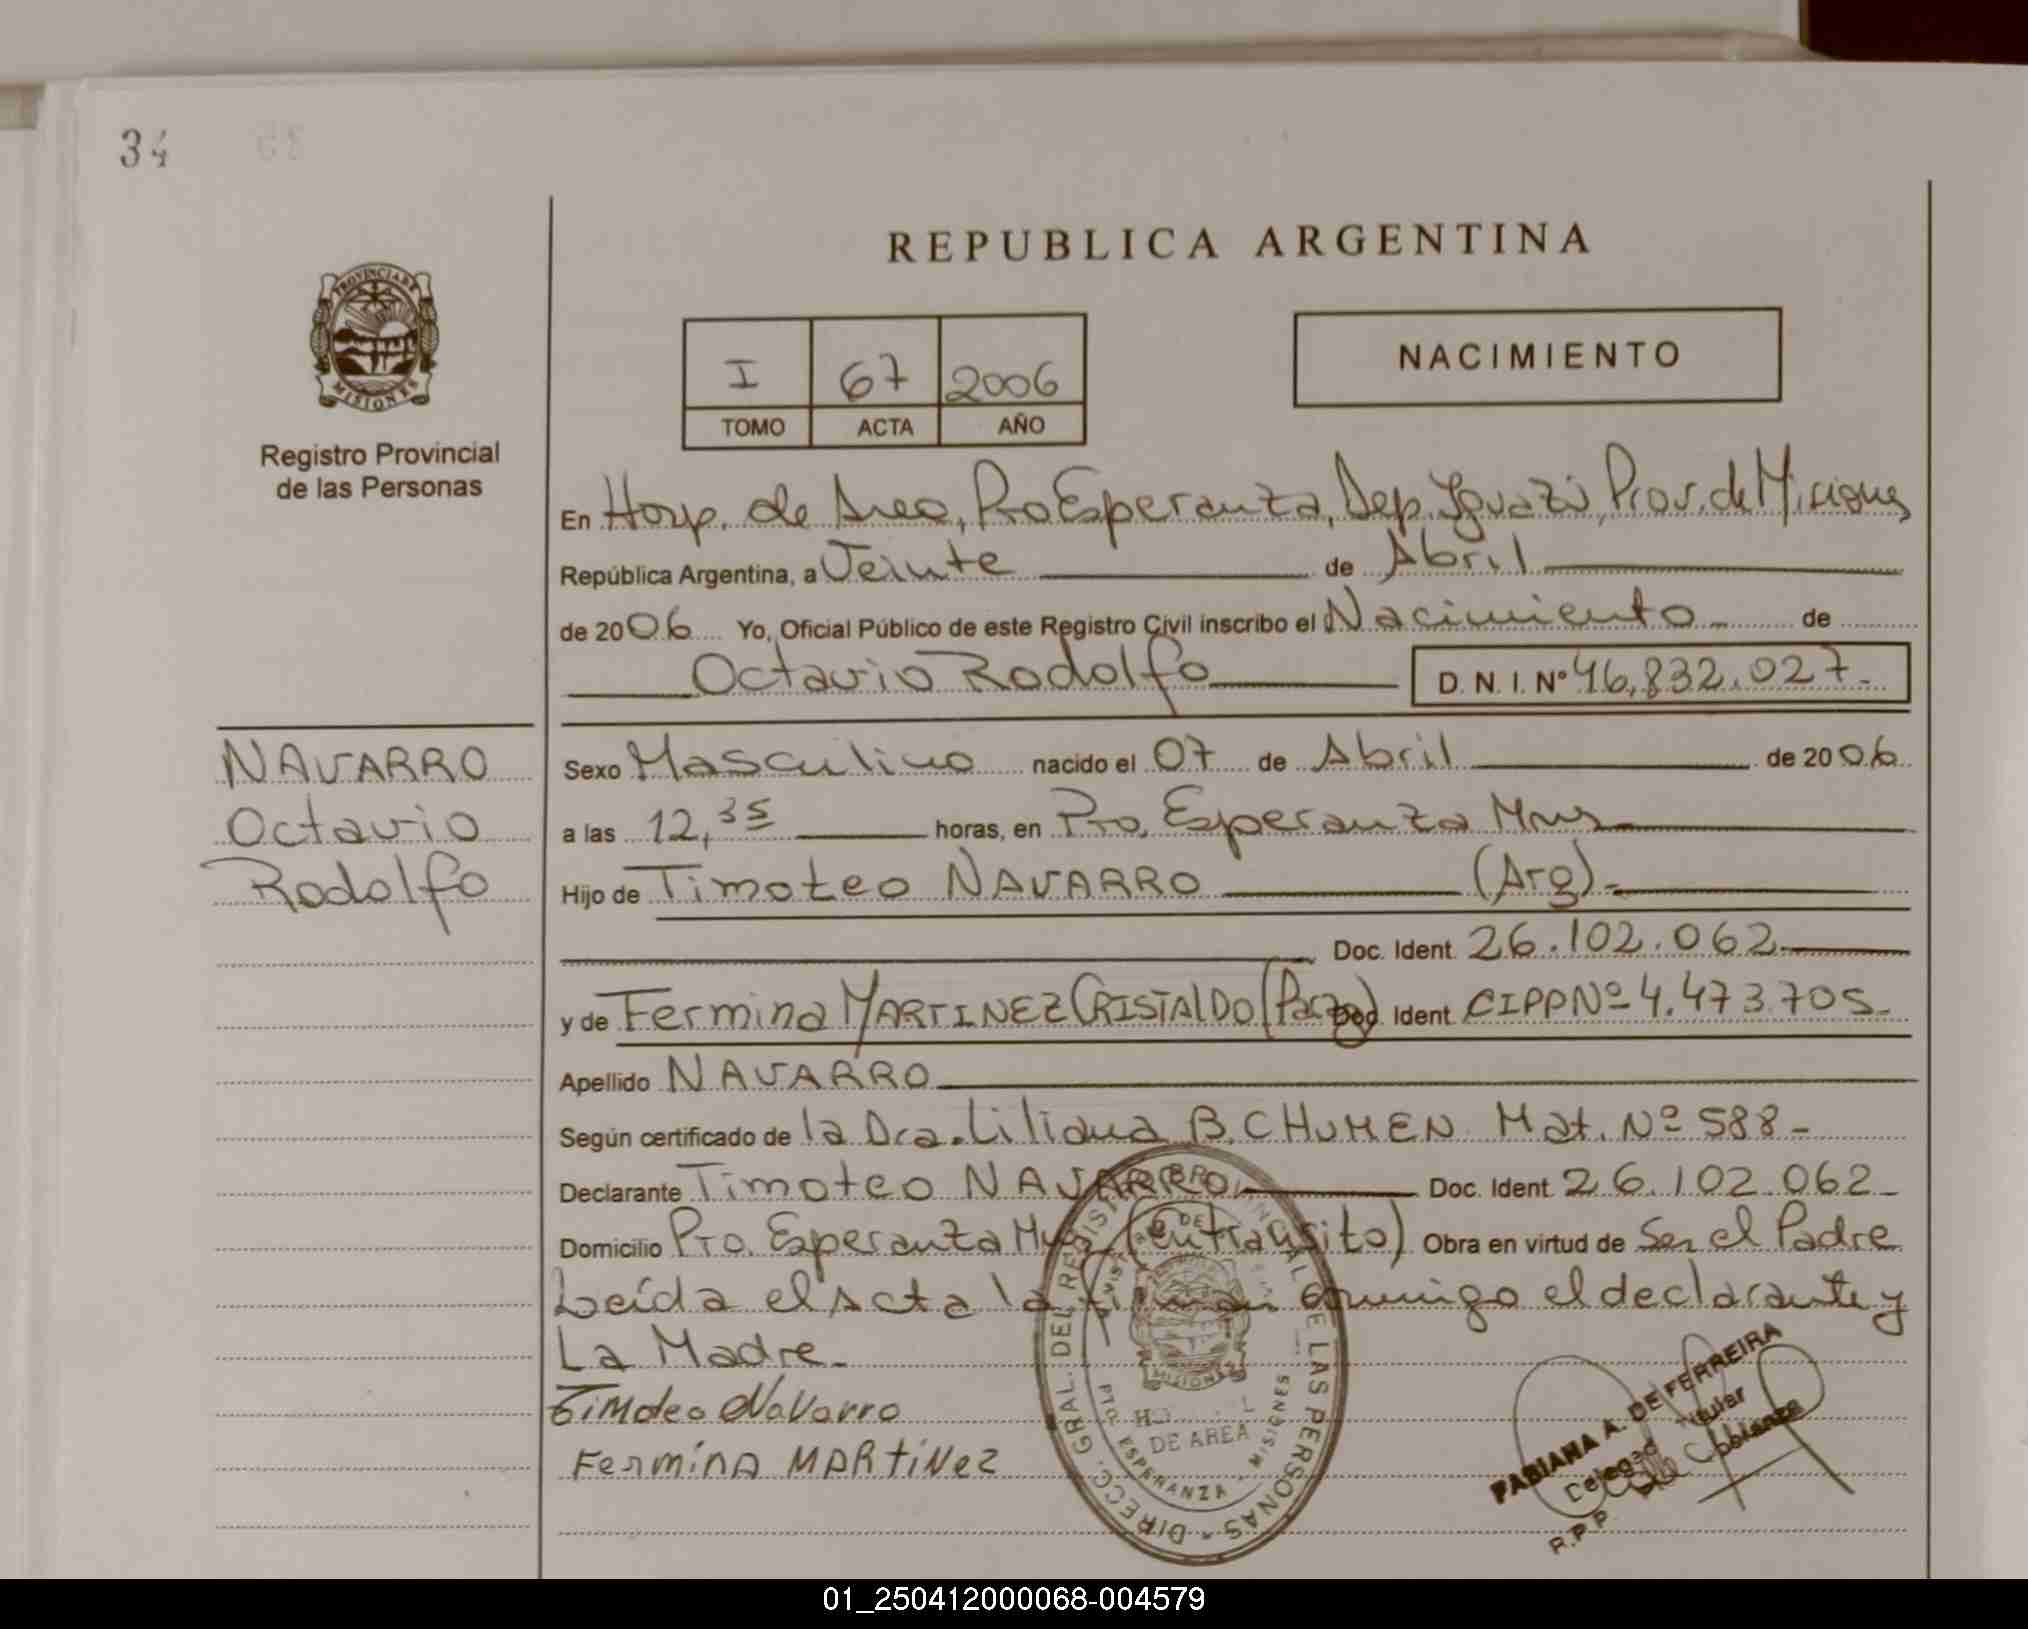 34
REPUBLICA ARGENTINA
PROVINCIA DE
MISIONES
Registro Provincial
de las Personas
I 67 2006
TOMO ACTA AÑO
NACIMIENTO
En Hosp. de Area, Pto Esperanza, Dep. Iguazú, Prov. de Misiones
República Argentina, a Veinte de Abril
de 2006 Yo, Oficial Público de este Registro Civil inscribo el Nacimiento de
Octavio Rodolfo D. N. I. N° 46,832.027-
NAVARRO
Octavio
Rodolfo
Sexo Masculino nacido el 07 de Abril de 2006
a las 12,35 horas, en Pto. Esperanza Mnes
Hijo de Timoteo NAVARRO (Arg)-
Doc. Ident. 26.102.062
y de Fermina MARTINEZ CRISTALDO (Parag) Doc. Ident. CIPP Nº 4.473.705-
Apellido NAVARRO
Según certificado de la Dra. Liliana B. CHUMEN Mat. Nº 588-
Declarante Timoteo NAVARRO Doc. Ident. 26.102.062-
Domicilio Pto. Esperanza Mnes (en transito) Obra en virtud de Ser el Padre
Leída el Acta la firman conmigo el declarante y
La Madre-
Timoteo Navarro
Fermina MARTINEZ
DIRECC. GRAL. DEL REGISTRO PROVINCIAL DE LAS PERSONAS
MISIONES
DE AREA
PTO. ESPERANZA - MISIONES
FABIANA A. DE FERREIRA
Delegada Titular
R.P.P.
01_250412000068-004579